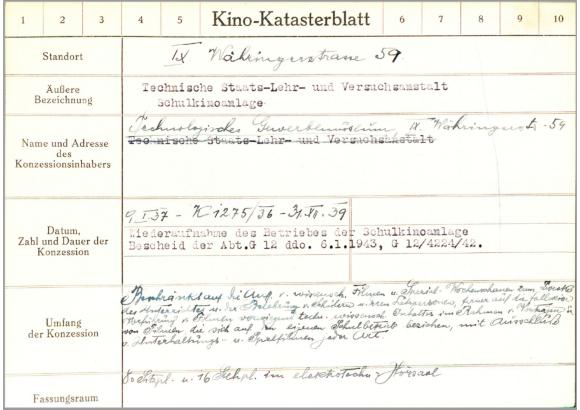 1 2 3 4 5 Kino-Katasterblatt 6 7 8 9 10
Standort IX Währingerstrasse 59
Äußere Bezeichnung
Technische Staats-Lehr- und Versuchsanstalt
Schulkinoanlage
Name und Adresse des Konzessionsinhabers
Technologisches Gewerbemuseum IX Währingerstr. 59
Technische Staats-Lehr- und Versuchsanstalt
Datum, Zahl und Dauer der Konzession
9.I.37 - K 1275/36 - 31.VII.39
Wiederaufnahme des Betriebes der Schulkinoanlage
Bescheid der Abt.G 12 ddo. 6.1.1943, G 12/4224/42.
Umfang der Konzession
Beschränkt auf die Auff. v. wissensch. Filmen u. Spezial-Wochenschauen zum Zwecke
des Unterrichtes u. der Belehrung v. Schülern u. Lehrpersonen, ferner auf die fallweise
Vorführung v. Filmen vorwiegend techn. wissensch. Inhaltes im Rahmen v. Vorträgen
von Filmen die sich auf den eigenen Schulbetrieb beziehen, mit Ausschluß
v. Unterhaltungs- u. Spielfilmen jeder Art.
Fassungsraum
80 Sitzpl. u. 16 Stehpl. im elektrotechn. Hörsaal